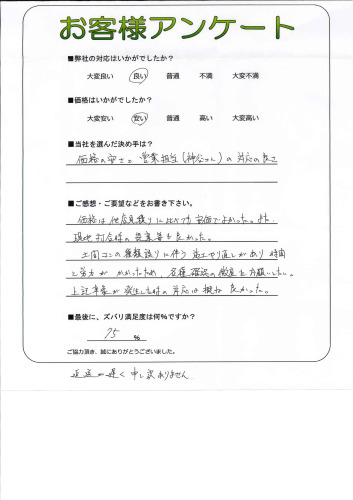 お客様アンケート
■弊社の対応はいかがでしたか？
大変良い 良い 普通 不満 大変不満
■価格はいかがでしたか？
大変安い 安い 普通 高い 大変高い
■当社を選んだ決め手は？
価格の安さと営業担当(神谷さん)の対応の良さ
■ご感想・ご要望などをお書き下さい。
価格は他店見積りに比べても安価でよかった。また、
現地打合時の提案等も良かった。
土間コンの種類誤りに伴う施工やり直しがあり 時間
と労力がかかったため、各種確認の徹底をお願いしたい。
上記事象が発生した時の対応は概ね良かった。
■最後に、ズバリ満足度は何％ですか？
75 ％
ご協力頂き、誠にありがとうございました。
返送が遅く申し訳ありません